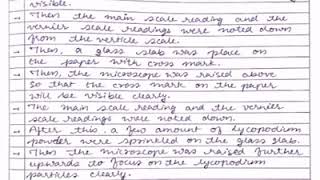 visible.
→ Then the main scale reading and the
vernier scale readings were noted down
from the verticle scale.
→ Then, a glass slab was place on
the paper with cross mark.
→ Then, the microscope was raised above
so that the cross mark on the paper
will be visible clearly.
→ The main scale reading and the vernier
scale readings were noted down.
→ After this, a few amount of lycopodium
powder were sprincled on the glass slab.
→ Then the microscope was raised further
upwards to focus on the lycopodium
particles clearly.